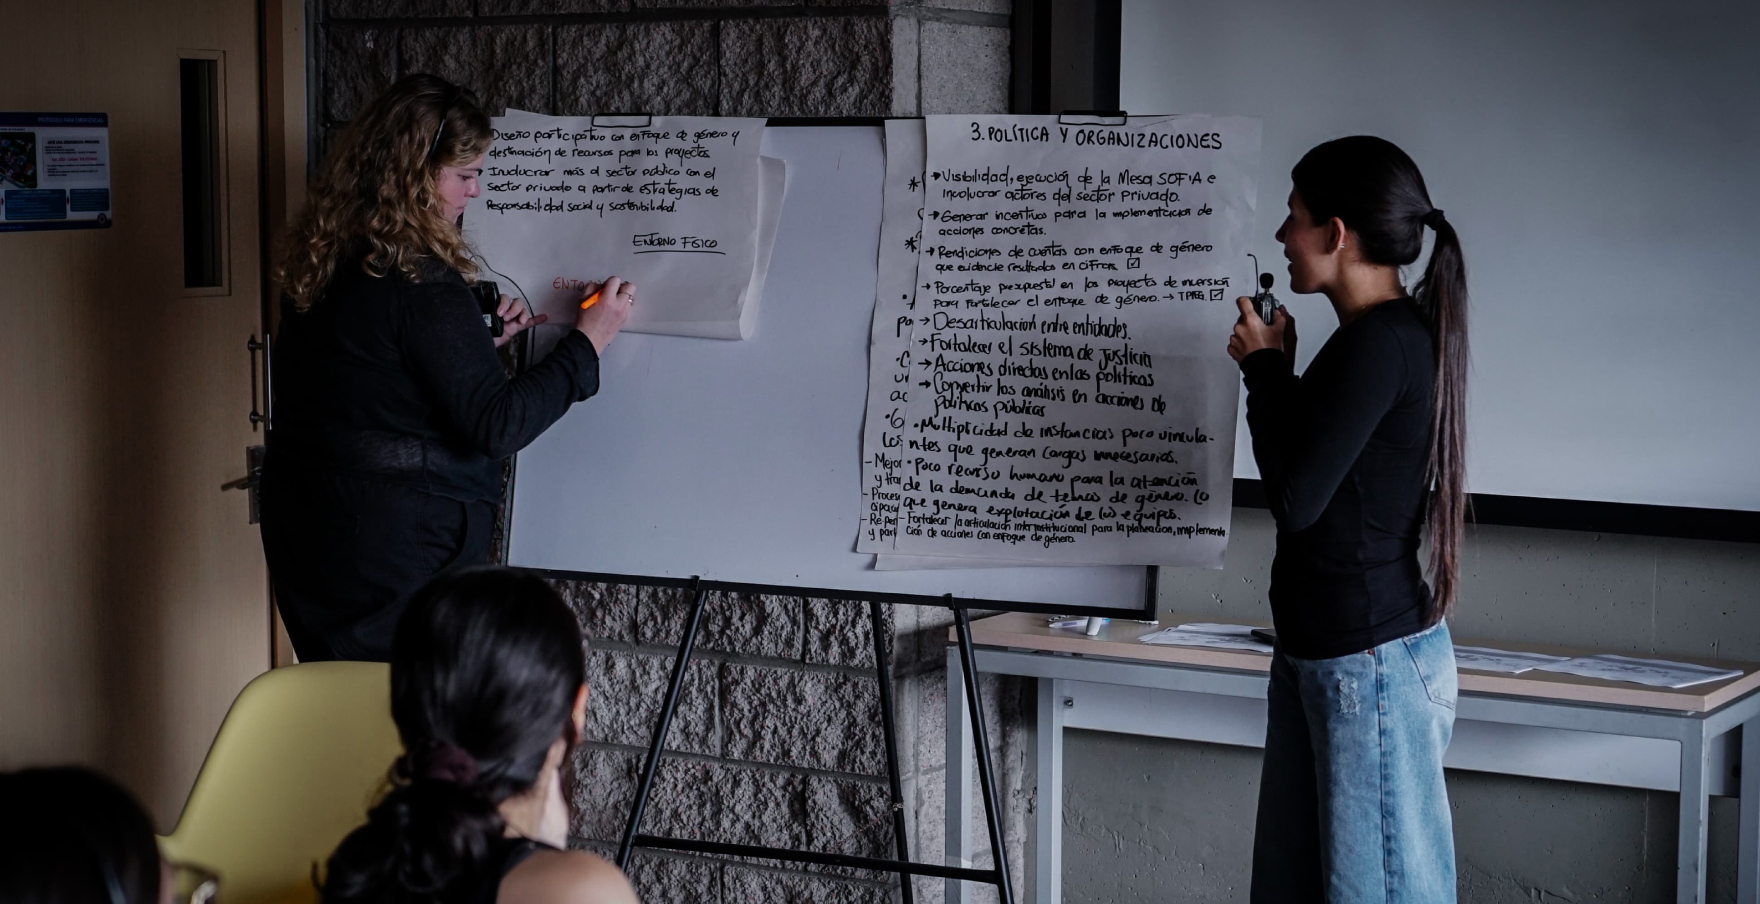 PROTOCOLO PARA EMERGENCIAS
Diseño participativo con enfoque de género y
destinación de recursos para los proyectos.
Involucrar más al sector público con el
sector privado a partir de estrategias de
Responsabilidad social y sostenibilidad.
ENTORNO FÍSICO
ENTO
3. POLÍTICA Y ORGANIZACIONES
→ Visibilidad, ejecución de la Mesa SOFIA e
involucrar actores del sector Privado.
→ Generar incentivos para la implementación de
acciones concretas.
→ Rendiciones de cuentas con enfoque de género
que evidencie resultados en cifras. ☑
→ Porcentaje presupuestal en los proyectos de inversión
para fortalecer el enfoque de género. → TPIEG ☑
→ Desarticulación entre entidades.
→ Fortalecer el sistema de justicia
→ Acciones directas en las políticas
→ Convertir los análisis en acciones de
políticas públicas
• Multiplicidad de instancias poco vincula-
ntes que generan cargas innecesarias.
• Poco recurso humano para la atención
de la demanda de temas de género. Lo
que genera explotación de los equipos.
- Fortalecer la articulación interinstitucional para la planeación, implementa
ción de acciones con enfoque de género.
- Mejor
y tra
- Proces